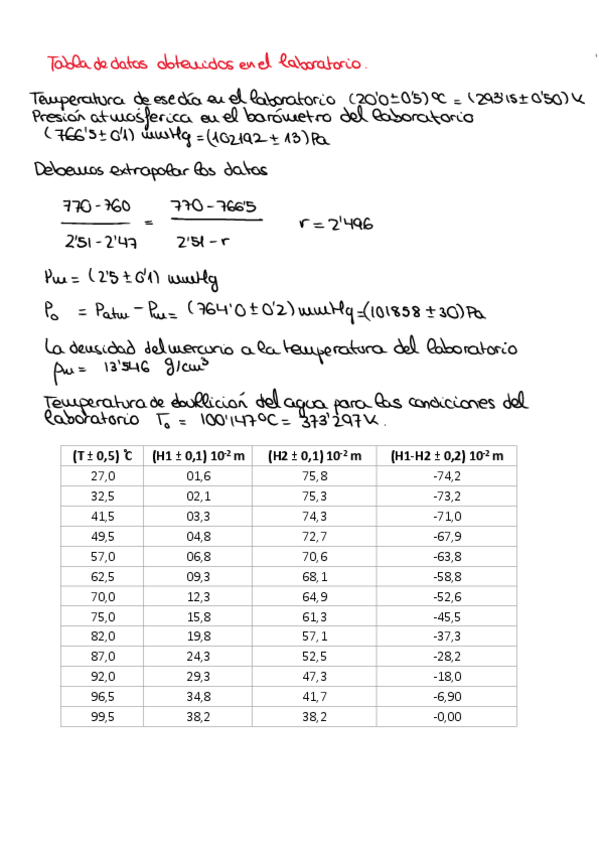 Tabla de datos obtenidos en el laboratorio.
Temperatura de ese día en el laboratorio (20'0±0'5)ºC = (293'15±0'50)K
Presión atmosférica en el barómetro del laboratorio
(766'5±0'1) mmHg = (102192±13)Pa
Debemos extrapolar los datos
770-760 / 2'51-2'47 = 770-766'5 / 2'51-r r=2'496
Pm = (2'5±0'1) mmHg
P₀ = Patm - Pm = (764'0±0'2)mmHg=(101858±30)Pa
La densidad del mercurio a la temperatura del laboratorio
ρm = 13'546 g/cm³
Temperatura de ebullición del agua para las condiciones del
laboratorio T₀ = 100'147ºC = 373'297K.
(T ± 0,5) ℃ (H1 ± 0,1) 10⁻² m (H2 ± 0,1) 10⁻² m (H1-H2 ± 0,2) 10⁻² m
27,0 01,6 75,8 -74,2
32,5 02,1 75,3 -73,2
41,5 03,3 74,3 -71,0
49,5 04,8 72,7 -67,9
57,0 06,8 70,6 -63,8
62,5 09,3 68,1 -58,8
70,0 12,3 64,9 -52,6
75,0 15,8 61,3 -45,5
82,0 19,8 57,1 -37,3
87,0 24,3 52,5 -28,2
92,0 29,3 47,3 -18,0
96,5 34,8 41,7 -6,90
99,5 38,2 38,2 -0,00